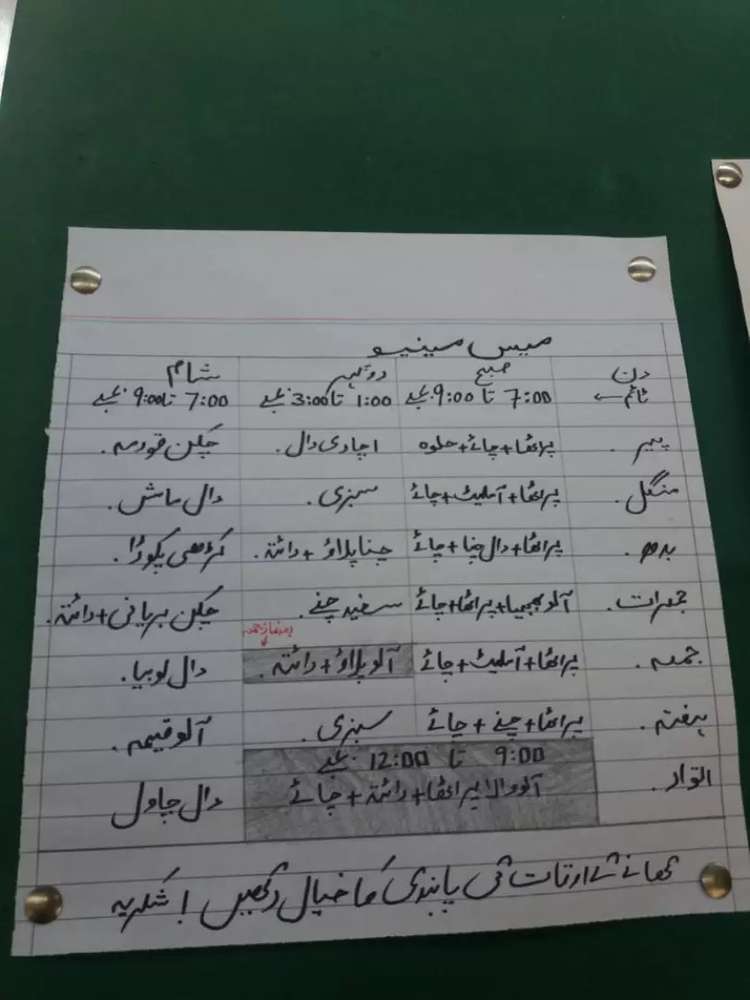 میس مینیو
دن صبح دوپہر شام
ٹائم← 7:00 تا 9:00 بجے 1:00 تا 3:00 بجے 7:00 تا 9:00 بجے
پیر. پراٹھا+چائے+حلوہ اچاری دال. چکن قورمہ.
منگل. پراٹھا+آملیٹ+چائے سبزی. دال ماش.
بدھ. پراٹھا+دال چنا+چائے چنا پلاؤ+رائتہ. کڑھی پکوڑا.
جمعرات. آلو بھجیا+پراٹھا+چائے سفید چنے. چکن بریانی+رائتہ.
بعد نماز جمعہ
جمعہ. پراٹھا+آملیٹ+چائے آلو پلاؤ+رائتہ. دال لوبیا.
ہفتہ. پراٹھا+چنے+چائے سبزی. آلو قیمہ.
9:00 تا 12:00 بجے
اتوار. آلو والا پراٹھا+رائتہ+چائے دال چاول
کھانے کے اوقات کی پابندی کا خیال رکھیں! شکریہ